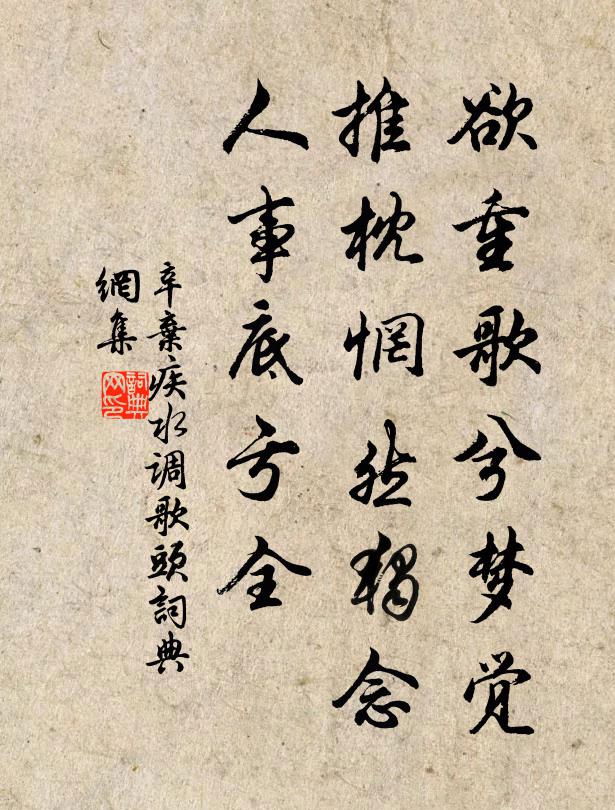 欲重歌兮梦觉
推枕惘然獨念
人事底亏全
辛棄疾水调歌頭詞典
網集
詞典
网印